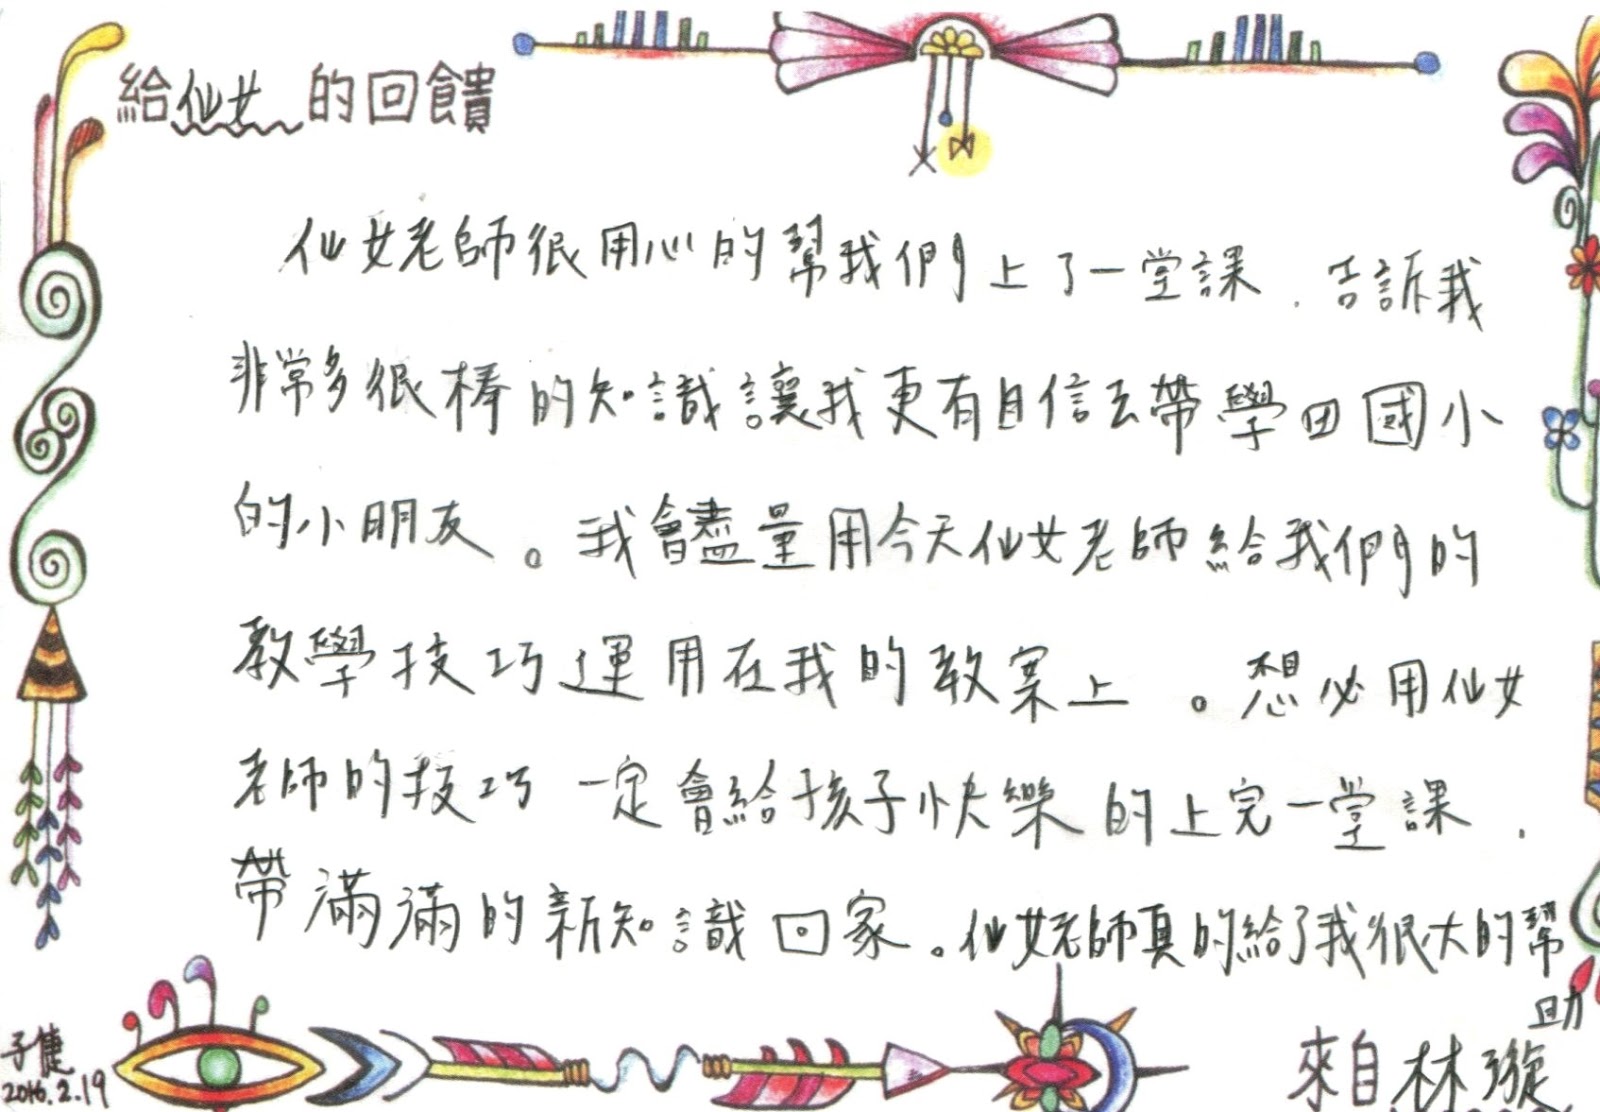 給仙女的回饋
仙女老師很用心的幫我們上了一堂課，告訴我
非常多很棒的知識讓我更有自信去帶學田國小
的小朋友。我會盡量用今天仙女老師給我們的
教學技巧運用在我的教案上。想必用仙女
老師的技巧一定會給孩子快樂的上完一堂課，
帶滿滿的新知識回家。仙女老師真的給了我很大的幫
助
來自林璇
子倢
2016.2.19